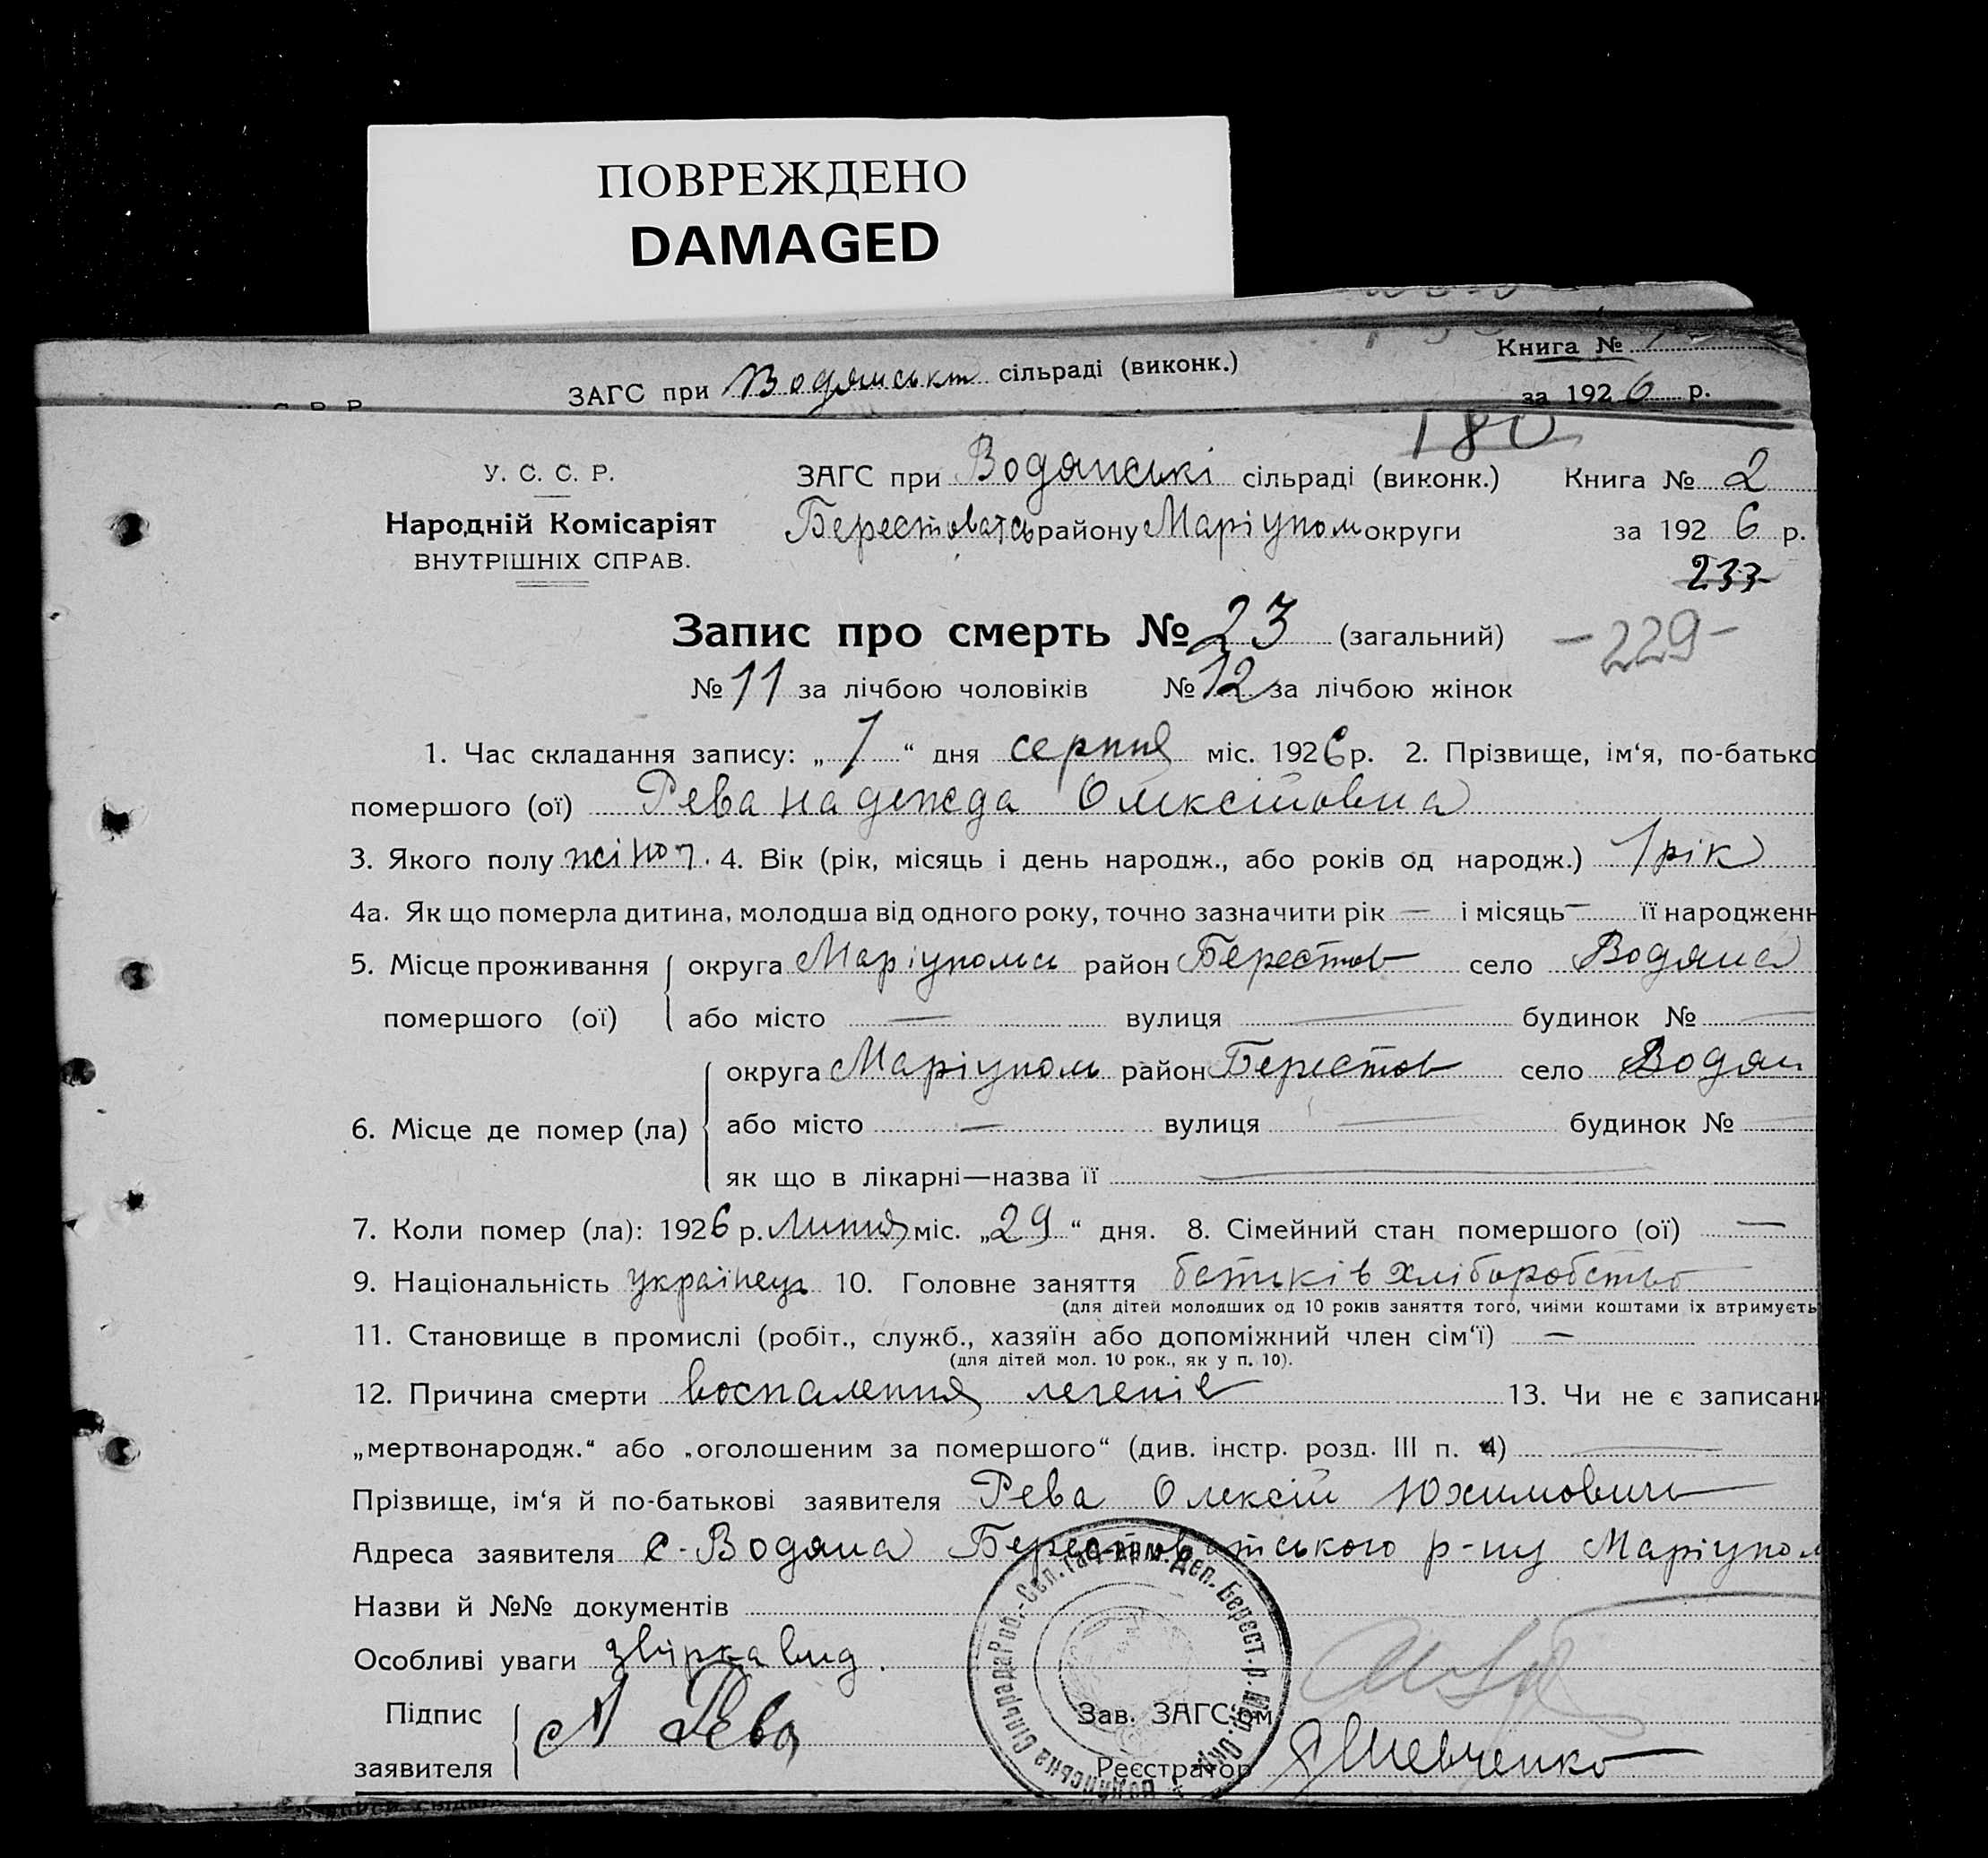 ПОВРЕЖДЕНО
DAMAGED
Книга №
ЗАГС при Водянськ сільраді (виконк.)
за 1926 р.
180
У. С. С. Р.
ЗАГС при Водянські сільраді (виконк.) Книга № 2
Народній Комісаріят
Берестоватсь району Маріупом округи за 1926 р.
ВНУТРІШНІХ СПРАВ.
233
Запис про смерть № 23 (загальний)
-229-
№ 11 за лічбою чоловіків № 12 за лічбою жінок
1. Час складання запису: „1“ дня серпня міс. 1926 р. 2. Прізвище, ім‘я, по-батько
помершого (ої) Рева Надежда Олексіовна
3. Якого полу жіноч. 4. Вік (рік, місяць і день народж., або років од народж.) 1 рік
4а. Як що померла дитина, молодша від одного року, точно зазначити рік — і місяць — її народженн
5. Місце проживання округа Маріупольс район Берестов село Водяна
помершого (ої) або місто — вулиця — будинок № —
округа Маріуполь район Берестов село Водян
6. Місце де помер (ла) або місто — вулиця — будинок № —
як що в лікарні—назва її —
7. Коли помер (ла): 1926 р. липня міс. „29“ дня. 8. Сімейний стан помершого (ої) —
9. Національність українець 10. Головне заняття батьків хліборобство
(для дітей молодших од 10 років заняття того, чиїми коштами їх втримуєть
11. Становище в промислі (робіт., служб., хазяїн або допоміжний член сім‘ї) —
(для дітей мол. 10 рок., як у п. 10).
12. Причина смерти воспалення легенів 13. Чи не є записани
„мертвонародж.“ або „оголошеним за помершого“ (див. інстр. розд. III п. 4) —
Прізвище, ім‘я й по-батькові заявителя Рева Олексій Юхимович
Адреса заявителя с. Водяна Берестоватського р-ну Маріупол
Назви й №№ документів
Особливі уваги звірка вид.
Підпис
заявителя А Рева
Зав. ЗАГС‘ом
Реєстратор Шевченко